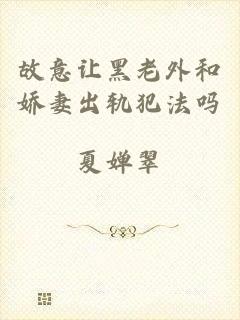 故意让黑老外和
娇妻出轨犯法吗
夏婵翠